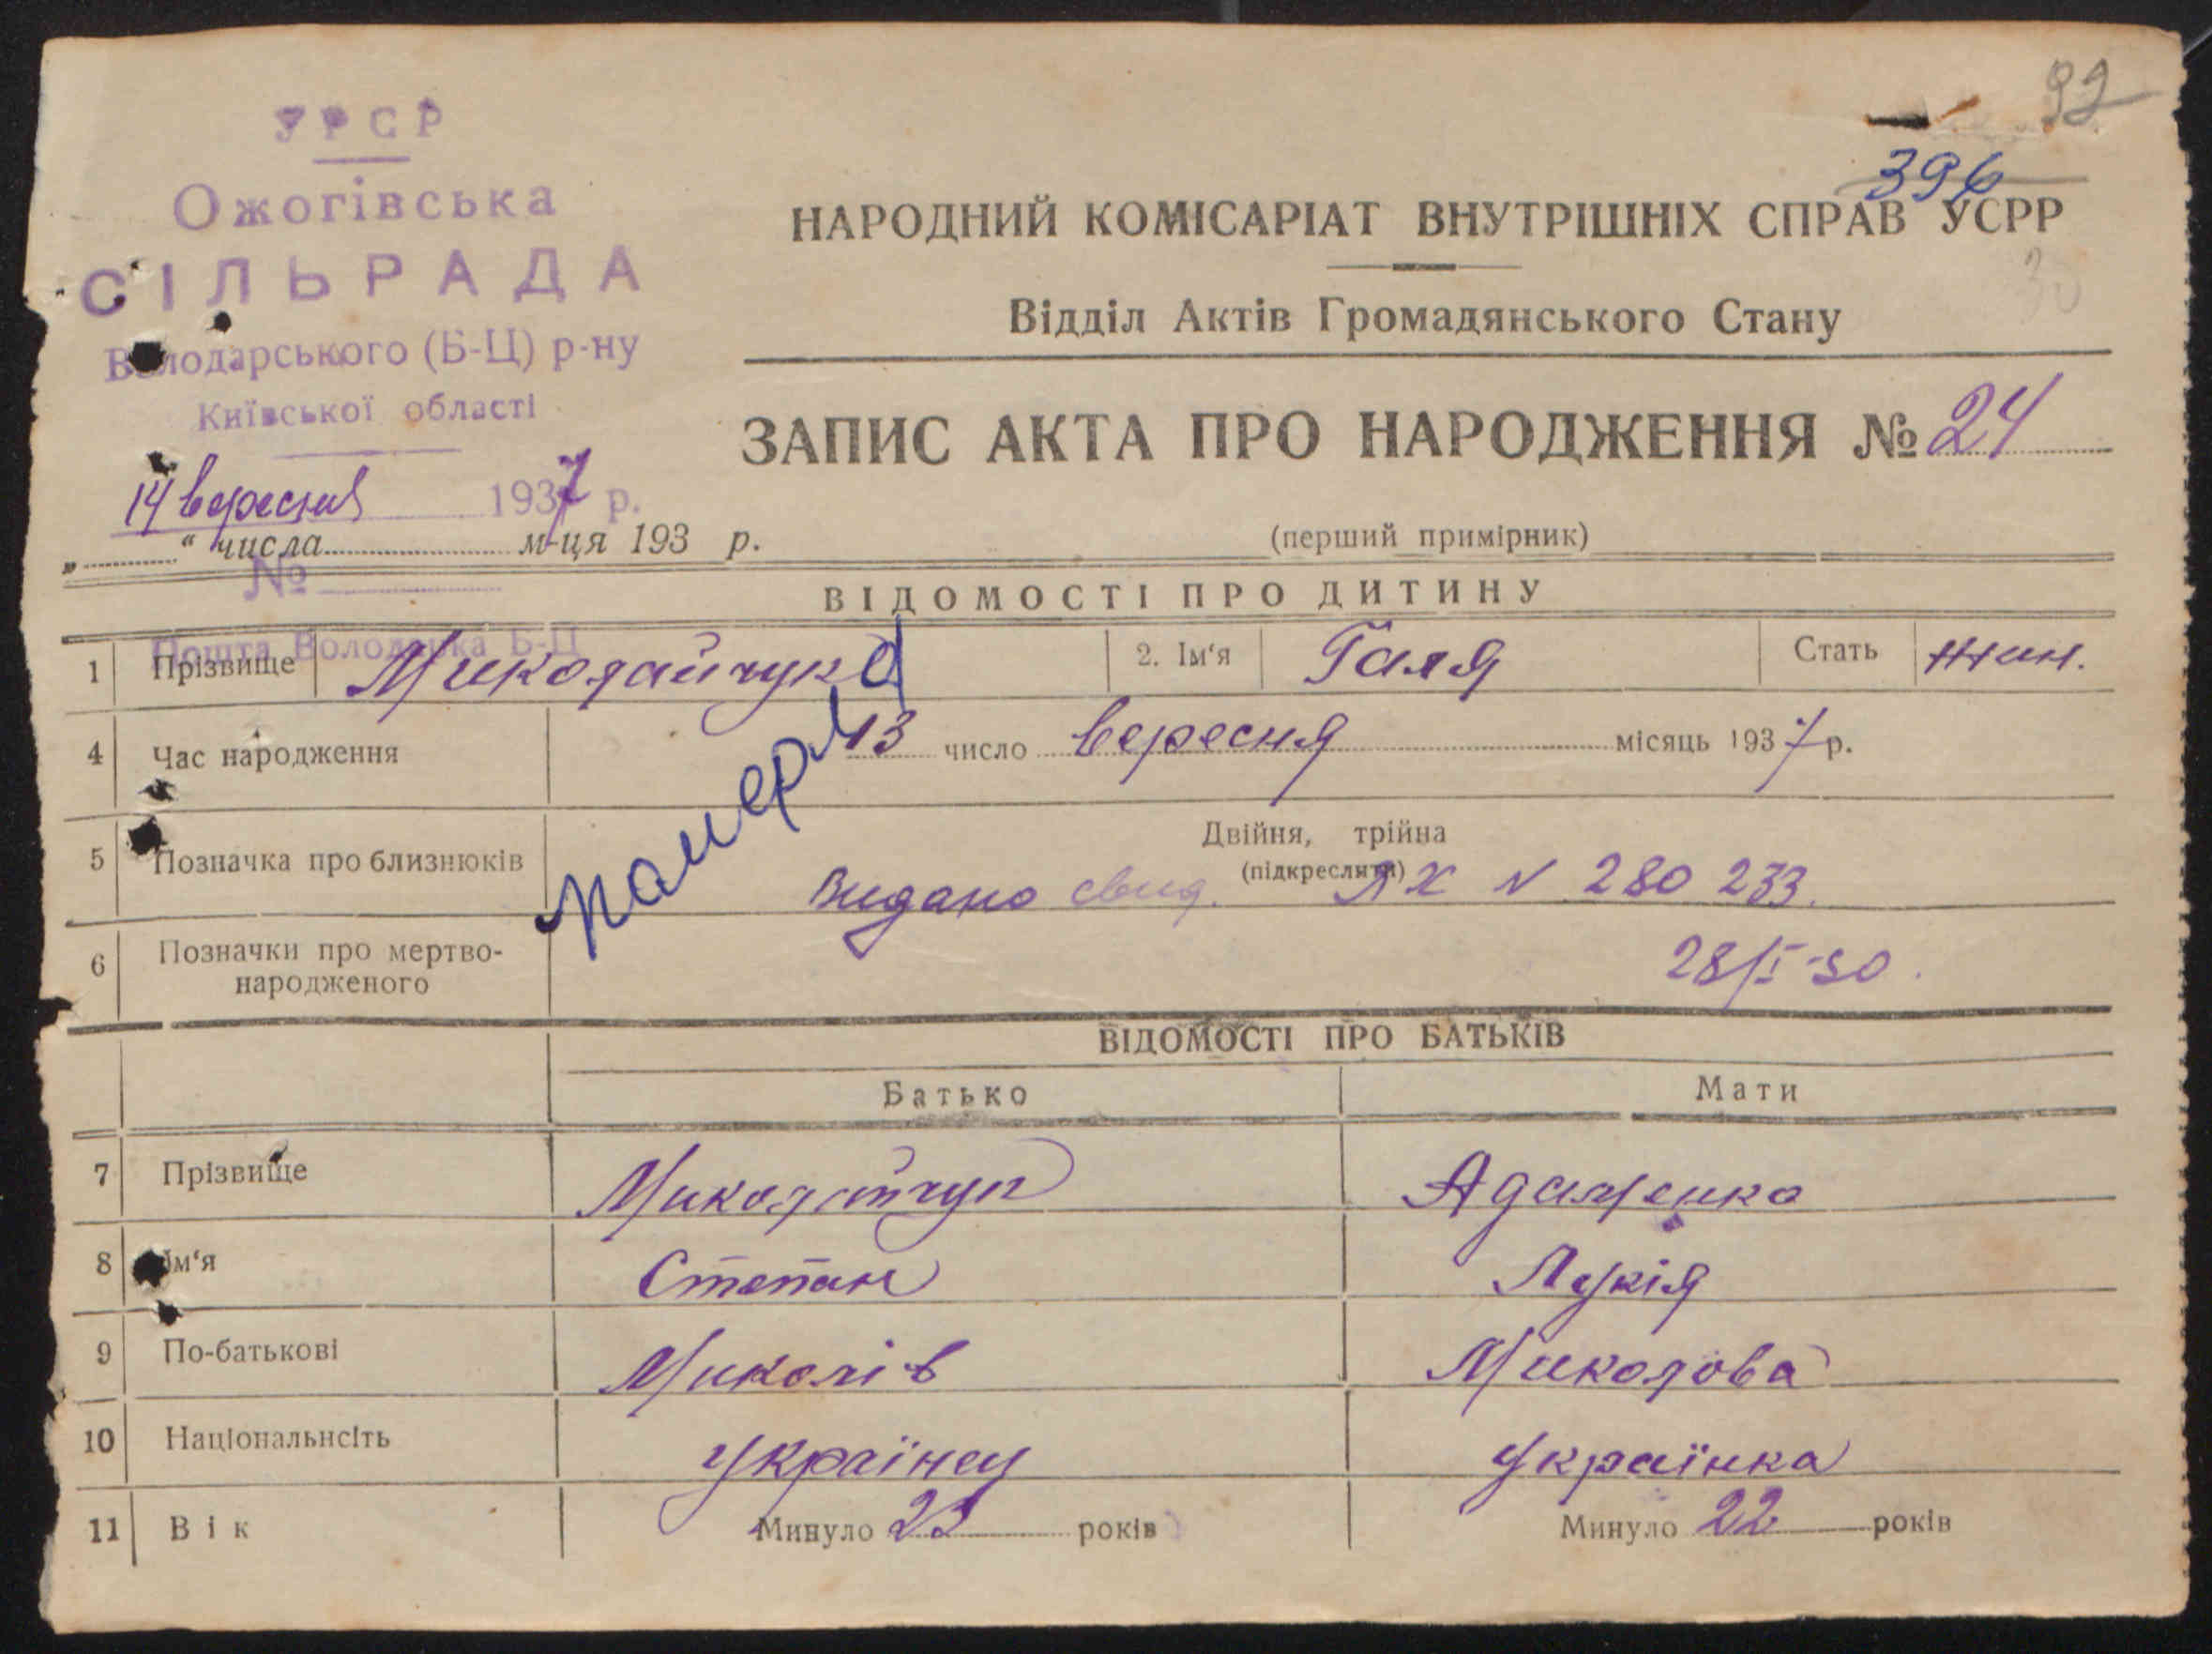 92
396
30
УРСР
Ожогівська
СІЛЬРАДА
Володарського (Б-Ц) р-ну
Київської області
14 вересня 1937 р.
№
Пошта Володарка Б-Ц
НАРОДНИЙ КОМІСАРІАТ ВНУТРІШНІХ СПРАВ УСРР
Відділ Актів Громадянського Стану
ЗАПИС АКТА ПРО НАРОДЖЕННЯ № 24
„ “ числа м-ця 193 р.
(перший примірник)
ВІДОМОСТІ ПРО ДИТИНУ
1 Прізвище Миколайчук 2. Ім‘я Галя Стать жин.
померла
4 Час народження 13 число вересня місяць 1937 р.
5 Позначка про близнюків Двійня, трійна
(підкреслити)
Видано свид. ЯХ № 280 233.
6 Позначки про мертво-
народженого
28/I-50.
ВІДОМОСТІ ПРО БАТЬКІВ
Батько Мати
7 Прізвище Миколайчук Адаменко
8 Ім‘я Степан Лукія
9 По-батькові Миколів Миколова
10 Національнсіть Українец Українка
11 Вік Минуло 23 років Минуло 22 років